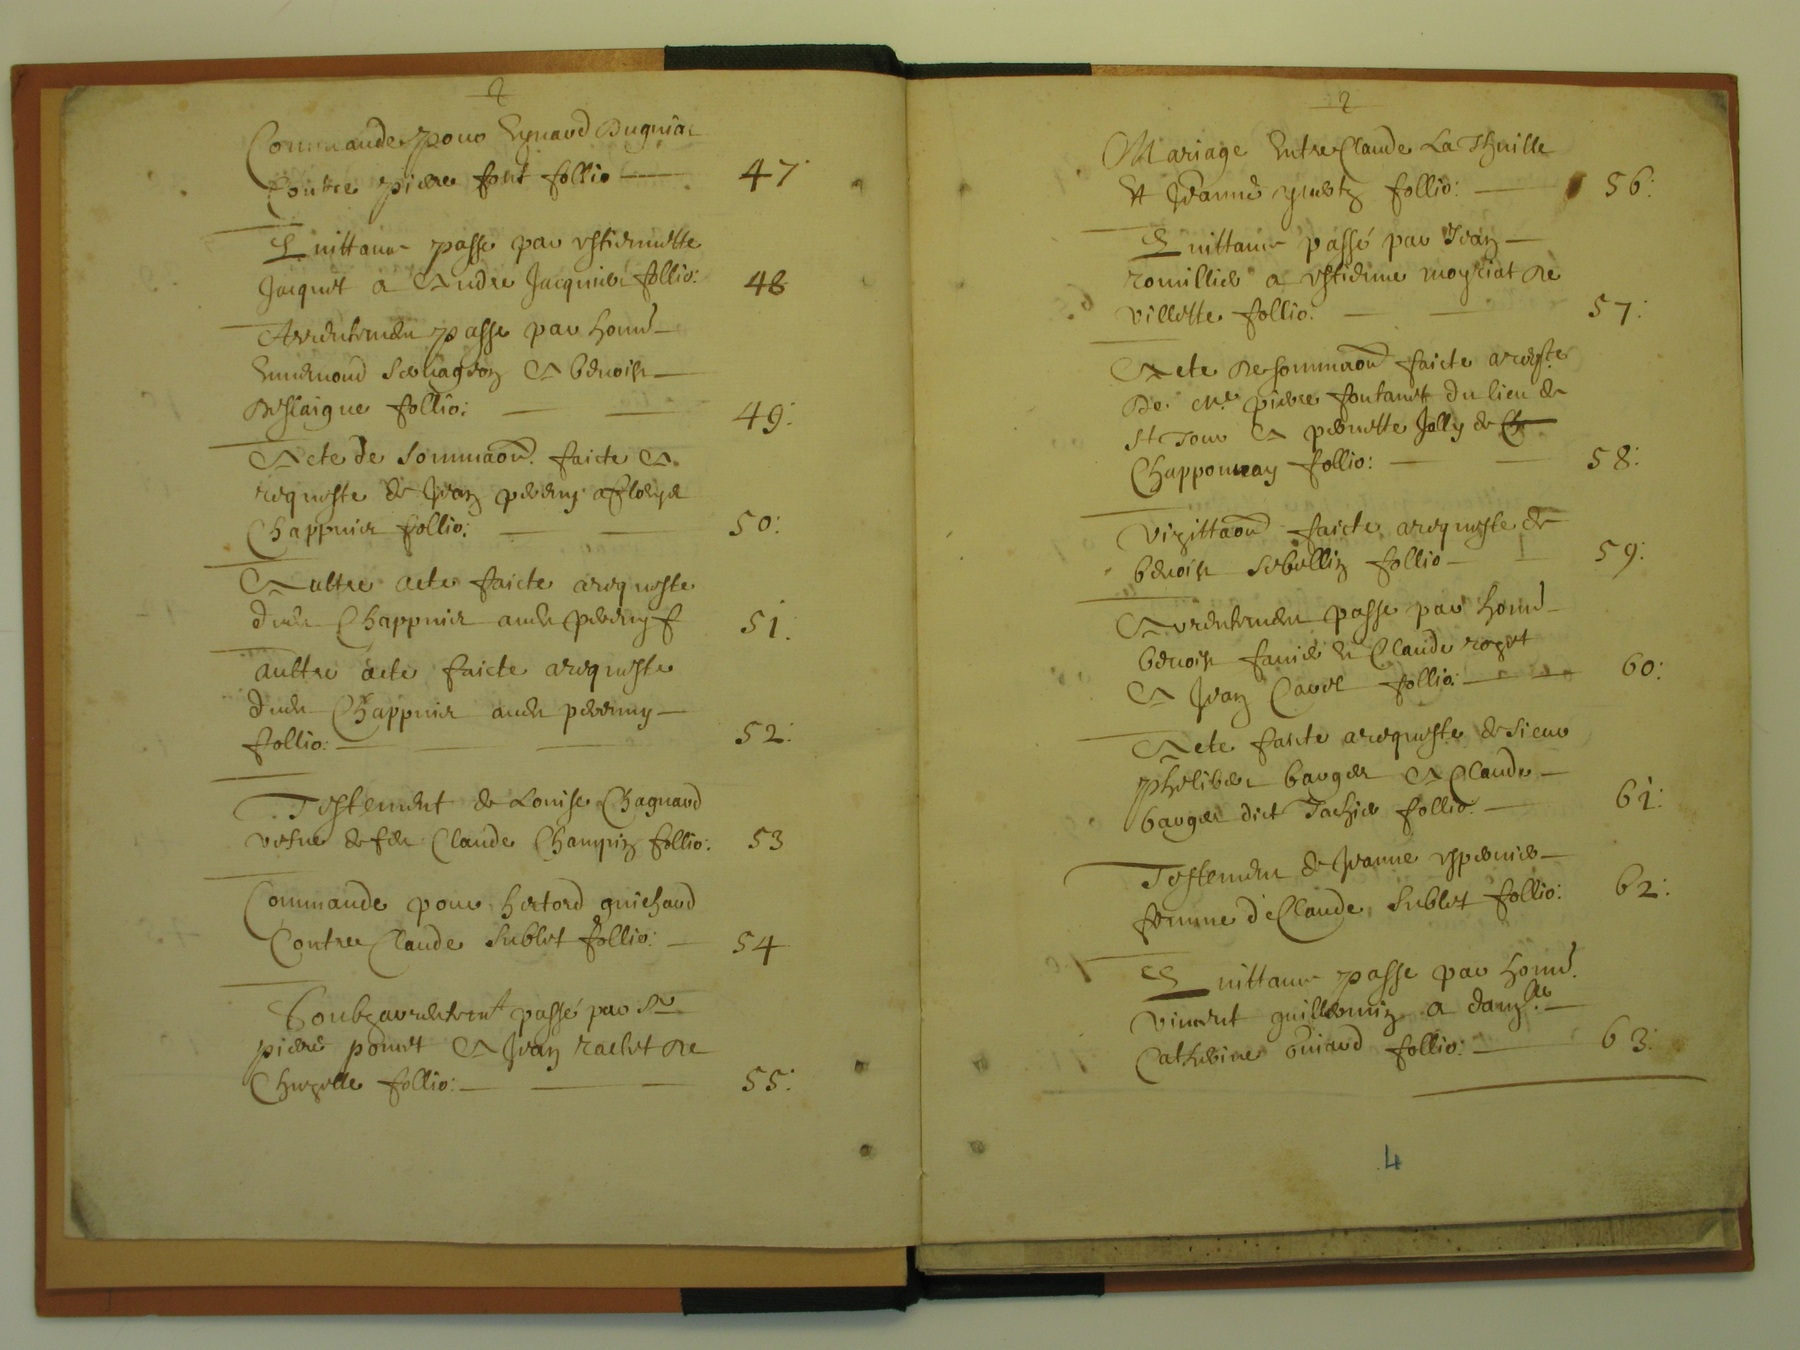 2
Commande pour Eynard Dugniat
Contre pierre font follio 47
Quittance passe par estiennette
Jacquet a Andre Jacquier follio: 48
Arrentemen passe par honn^e
Ennemond A benoist
follio: 49:
Acte de sommaon. faicte A
requeste de Jean perduy
Chappuier follio: 50:
Aultre acte faicte arequeste
dudt Chappuier audt f 51:
aultre acte faicte arequeste
dudt Chappuier audt
follio: 52:
Testement de Louise Chagnard
vefve de feu Claude Champin follio: 53
Commande pour hector guichard
Contre Claude Sublet follio: 54
Soubzarrentemt passé par Sr
pierre ponnet A Jean raclet de
Chezelle follio: 55:
2
Mariage Entre Claude La Thuille
Et Jeanne follio: 56:
Quittance passé par Jean
romillier a estienne moyriat de
villette follio: 57:
Acte de sommaon faicte areqste
De Me pierre fontanet du lieu de
St Jour A pernette Jolly de
Chapponnay follio: 58:
Vizittaon faicte arequeste de
benoist Sebellin follio 59:
Arrentemen passe par honn^e
benoist favier Et Claude roget
A Jean Carre follio: 60:
Acte faicte arequeste de sieur
philiber bauger A Claude
bauger dict Tachier follio: 61:
Testemen de Jeanne
femme de Claude Sublet follio: 62:
Quittance passe par honn^e.
vincent guillermin a damlle
Catherine follio: 63:
4